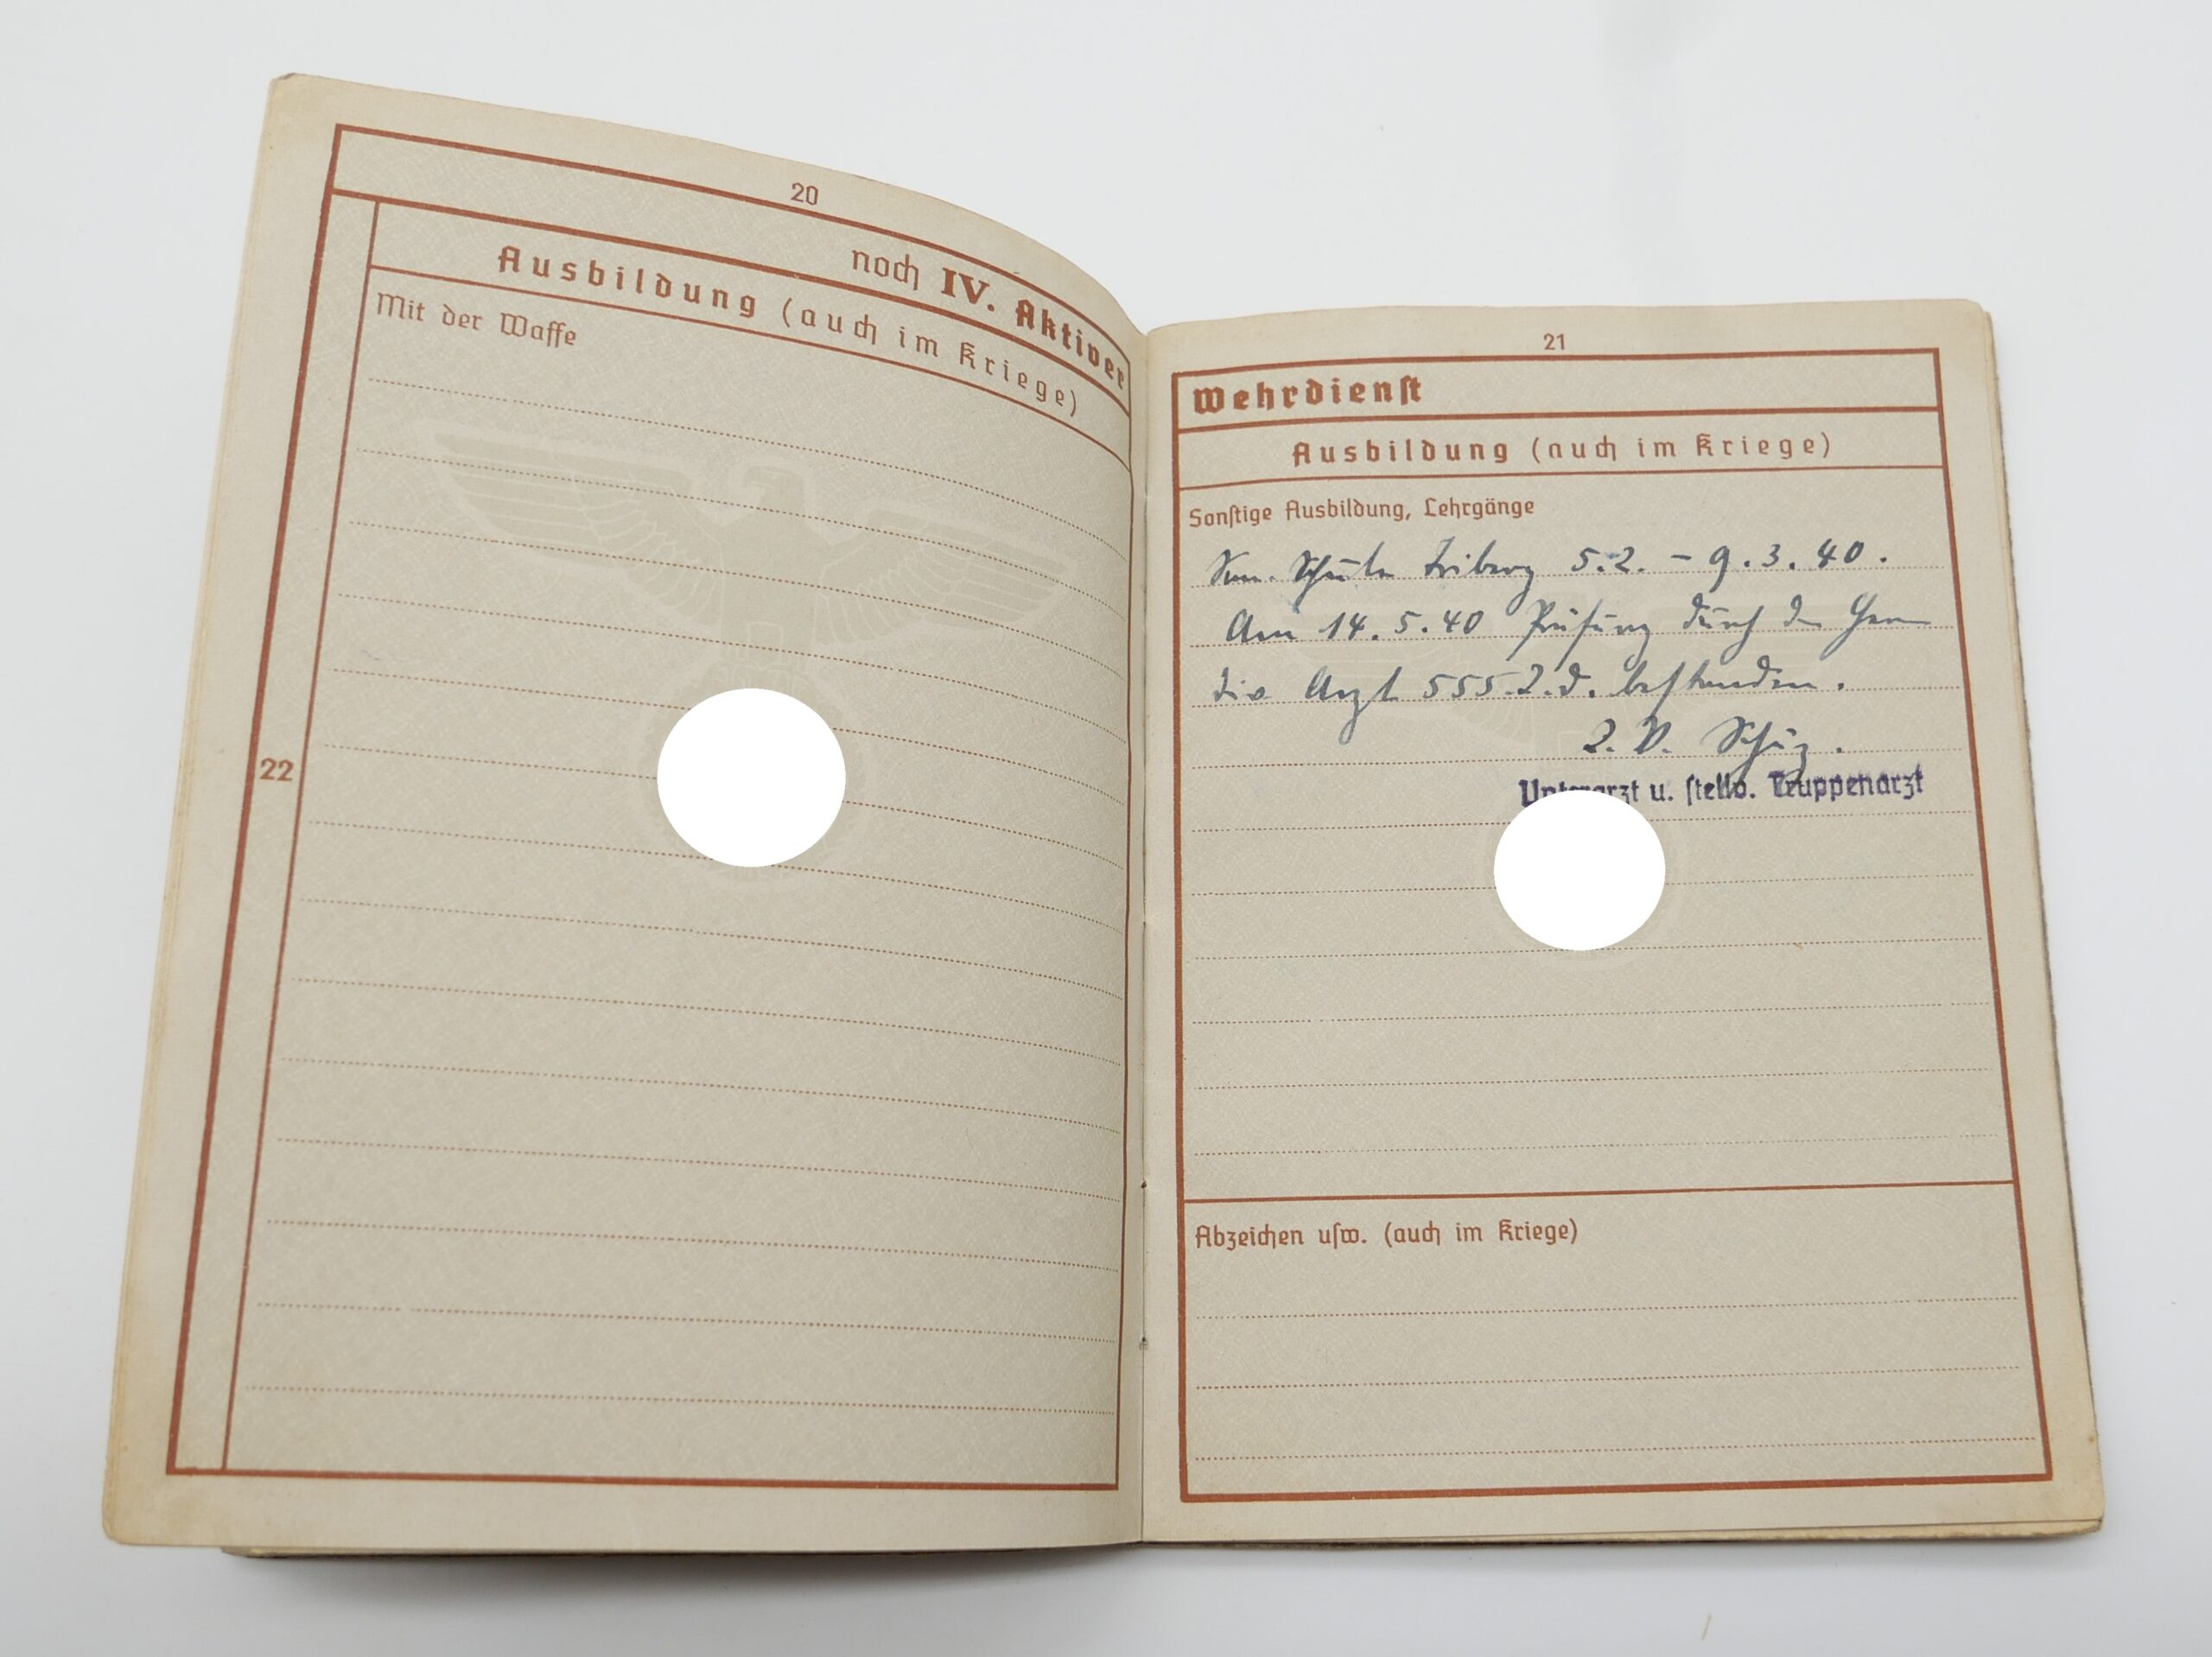 20
noch IV. Aktiver
Ausbildung (auch im Kriege)
Mit der Waffe
22
21
Wehrdienst
Ausbildung (auch im Kriege)
Sonstige Ausbildung, Lehrgänge
San. Schule Triberg 5.2. – 9.3.40.
Am 14.5.40 Prüfung durch den Herrn
Div Arzt 555.J.D. bestanden.
Unterarzt u. stellv. Truppenarzt
Abzeichen usw. (auch im Kriege)